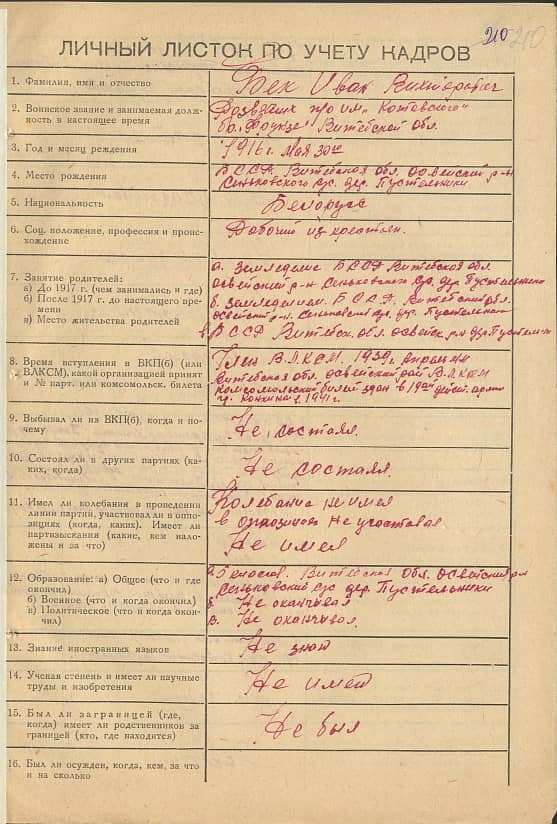 210 210
ЛИЧНЫЙ ЛИСТОК ПО УЧЕТУ КАДРОВ
1. Фамилия, имя и отчество
Бек Иван Викторович
2. Воинское звание и занимаемая долж-
ность в настоящее время
Разведчик п/о им. "Котовского"
бр. Фрунзе Витебской обл.
3. Год и месяц реждения
1916 г. Мая 30
4. Место рождения
БССР. Витебская обл. Освейский р-н
Сеньковского с/с. дер. Пустельники
5. Национальность
Белорус
6. Соц. положение, профессия и проис-
хождение
Рабочий из крестьян.
7. Занятие родителей:
а) До 1917 г. (чем занимались и где)
б) После 1917 г. до настоящего вре-
мени
в) Место жительства родителей
а. Земледелие БССР Витебская обл.
Освейский р-н Сеньковского с/с. дер. Пустельники
б. Земледелием. БССР. Витебской обл.
Освейский р-н. Сеньковский с/с. дер. Пустельники
в. БССР Витебск. обл. Освейск. р-н дер. Пустельни
8. Время вступления в ВКП(б) (или
ВАКСМ), какой организацией принят
и № парт. или комсомольск. билета
Член ВЛКСМ. 1939 г. апреля
Витебская обл. Освейский рай ВЛКСМ
Комсомольский билет сдан в 19
в 1941 г.
9. Выбывал ли на ВКП(б), когда и по-
чему
Не состоял.
10. Состоял ли в других партиях (ка-
ких, когда)
Не состоял.
11. Имел ли колебания в проведении
линии партии, участвовал ли в оппо-
зициях (когда, каких). Имеет ли
партвзыскания (какие, кем нало-
жены и за что)
Колебание не имел
в оппозиции не участвовал
Не имел
12. Образование: а) Общее (что и где
окончил)
б) Военное (что и когда окончил)
в) Политическое (что и когда окон-
чил)
а. Витебская обл. Освейский р-н
Сеньковский с/с дер. Пустельники
б. Не оканчивал
в. Не оканчивал.
13. Знание иностранных языков
Не знаю
14. Ученая степень и имеет ли научные
труды и изобретения
Не имею
15. Был ли заграницей (где,
когда) имеет ли родственников за
границей (кто, где находится)
Не был
16. Был ли осужден, когда, кем, за что
и на сколько